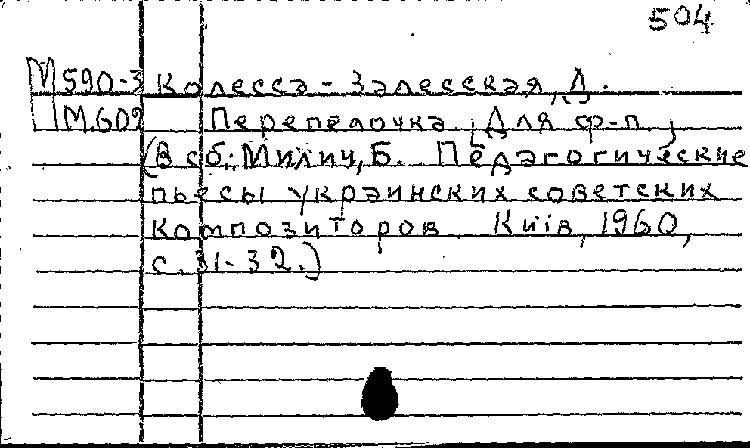 504
М590-3 Колесса-Залесская, Д.
М.609 Перепелочка [Для ф-п.]
(В сб.: Милич, Б. Педагогические
пьесы украинских советских
композиторов. Київ, 1960,
с. 31-32.)